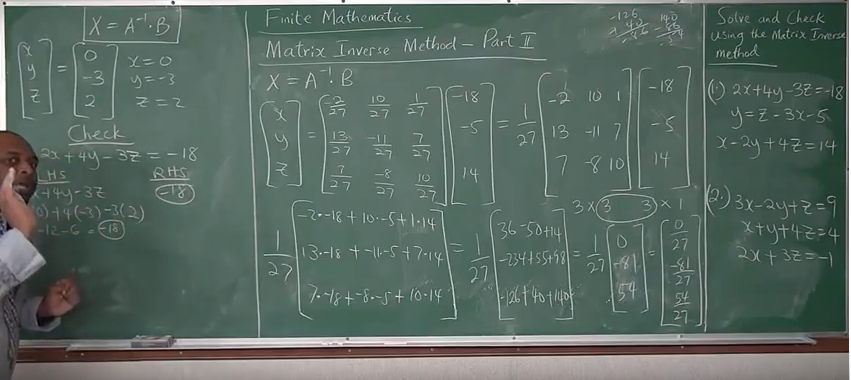 X = A⁻¹·B
[x y z] = [0 -3 2]
x=0
y=-3
z=2
Check
2x+4y-3z=-18
LHS RHS
+4y-3z -18
0)+4(-3)-3(2)
-12-6=-18
Finite Mathematics
Matrix Inverse Method - Part II
X = A⁻¹·B
[x y z] = [-2/27 10/27 1/27; 13/27 -11/27 7/27; 7/27 -8/27 10/27] [-18 -5 14] = 1/27 [-2 10 1; 13 -11 7; 7 -8 10] [-18 -5 14]
3×3 3×1
1/27 [-2·-18+10·-5+1·14; 13·-18+-11·-5+7·14; 7·-18+-8·-5+10·14] = 1/27 [36-50+14; -234+55+98; -126+40+140] = 1/27 [0 -81 54] = [0/27 -81/27 54/27]
Solve and Check
Using the Matrix Inverse
method
(1.) 2x+4y-3z=-18
y=z-3x-5
x-2y+4z=14
(2.) 3x-2y+z=9
x+y+4z=4
2x+3z=-1